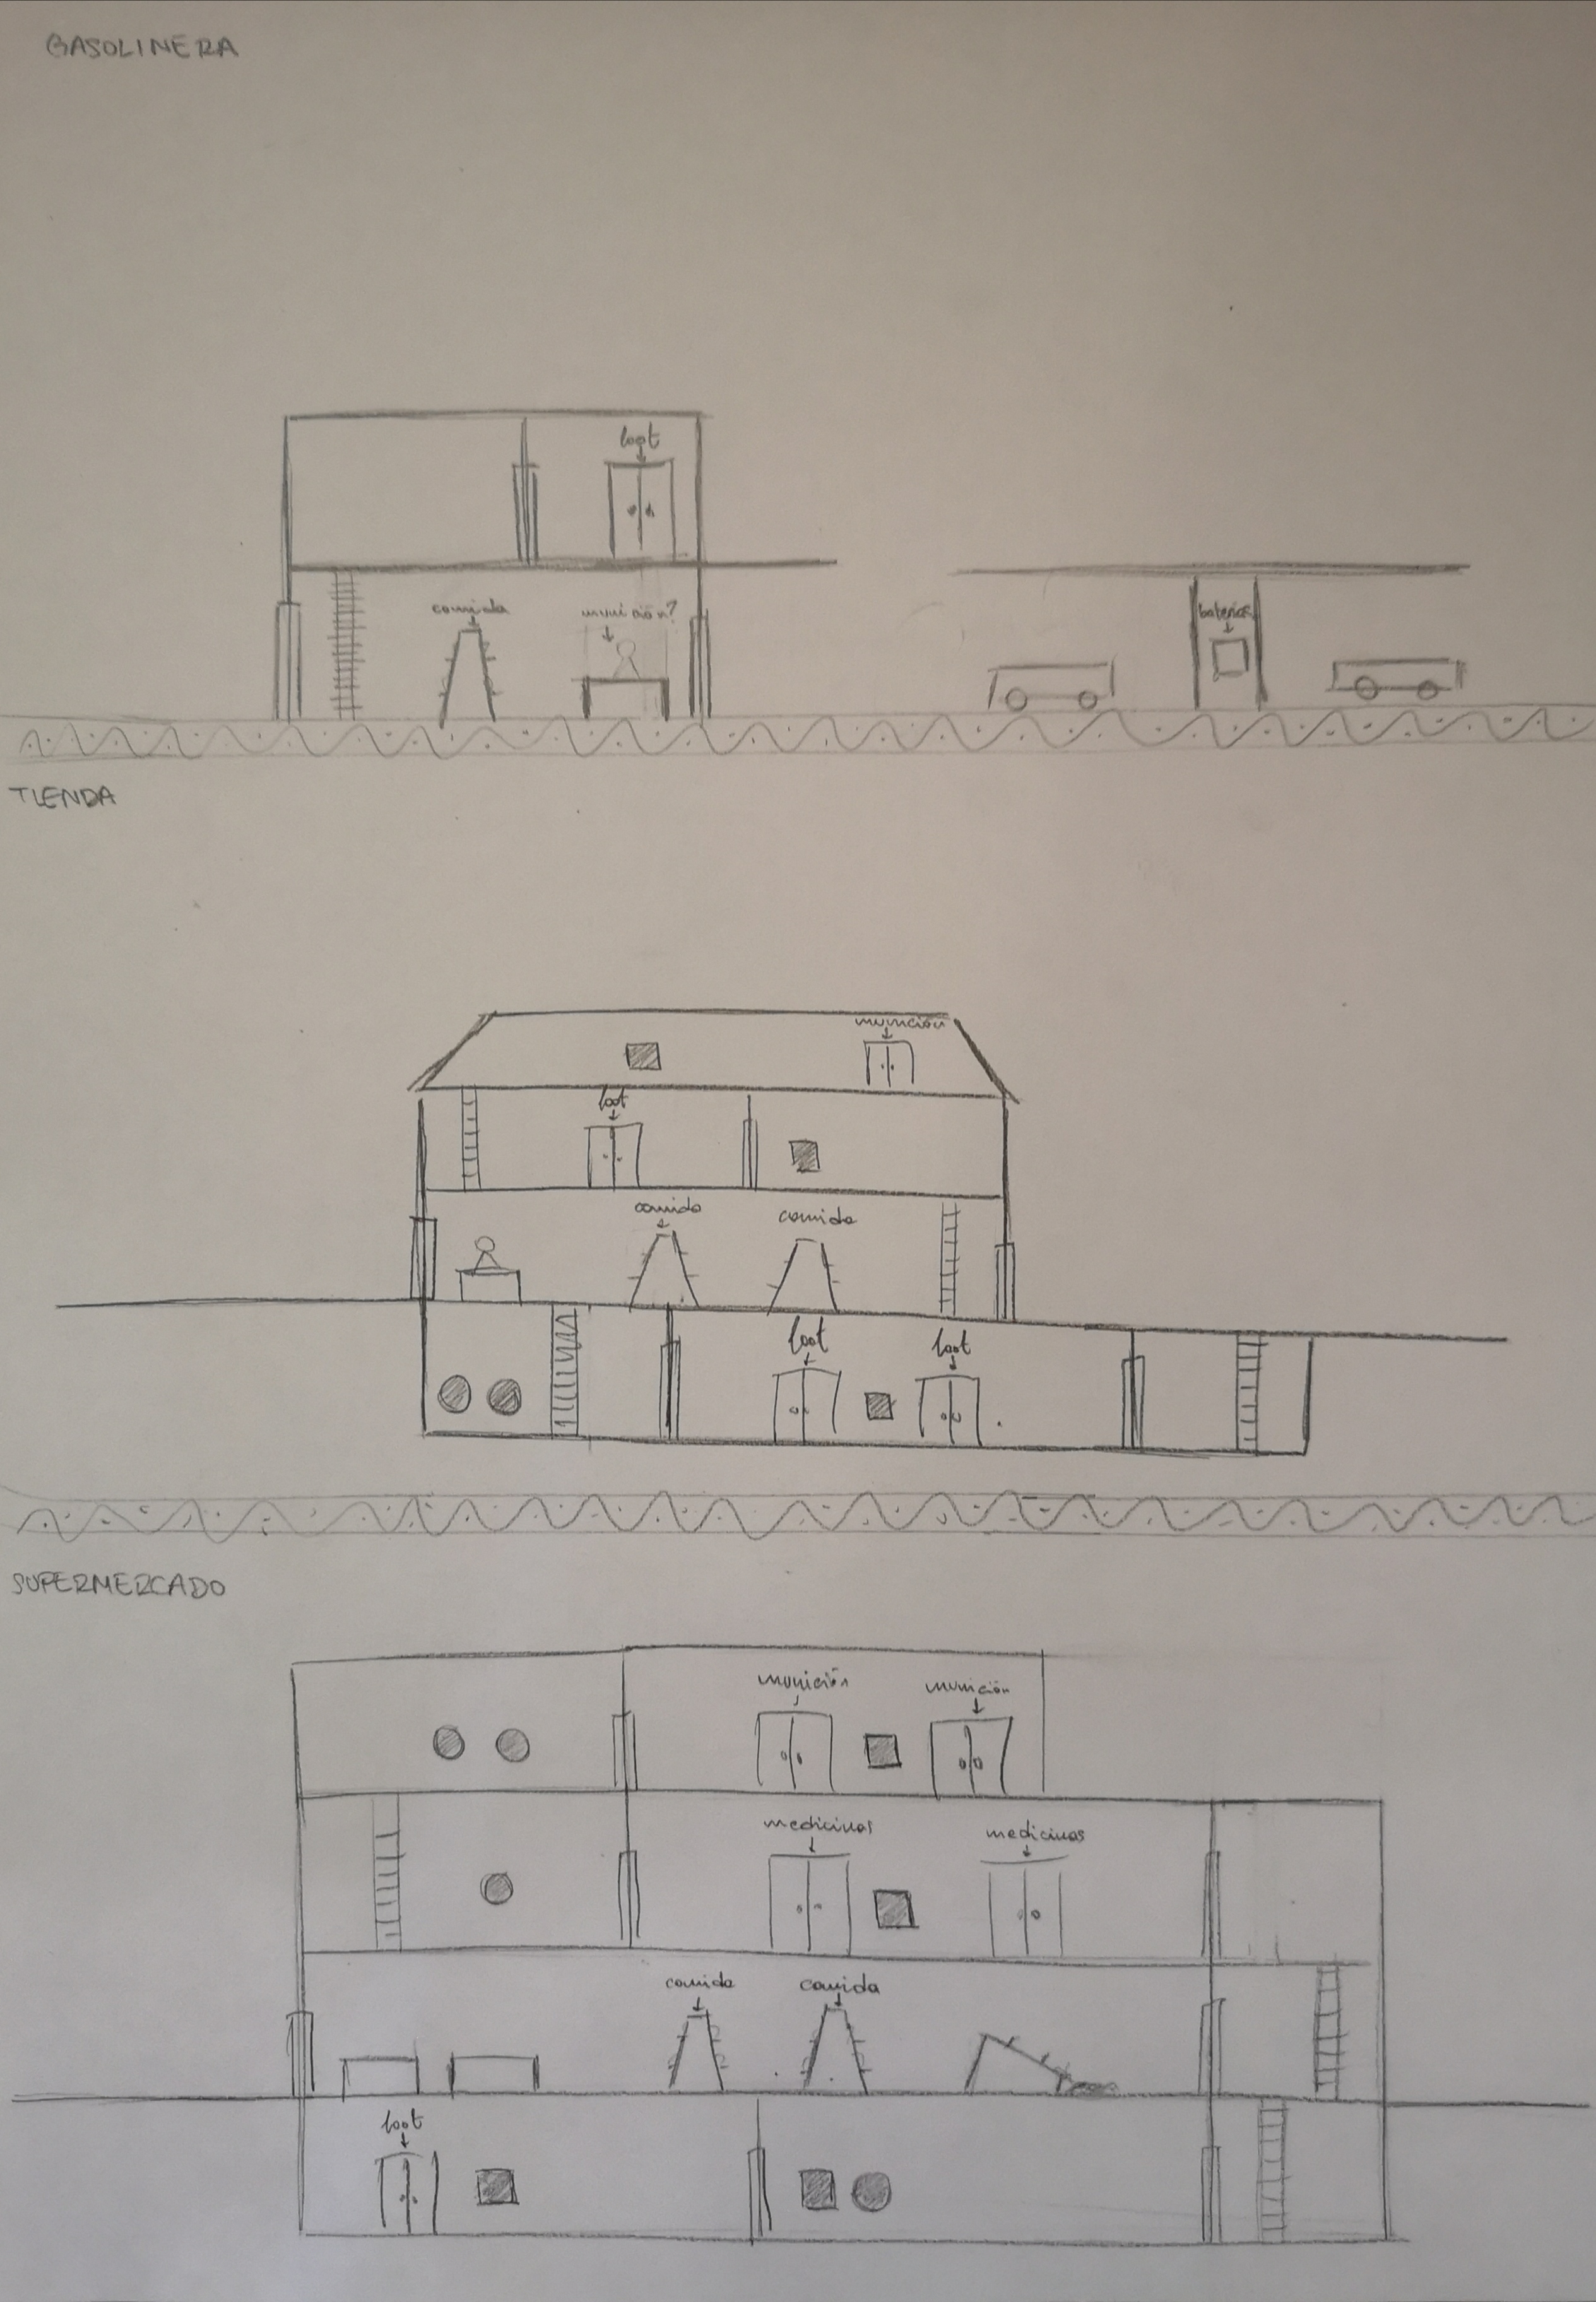 GASOLINERA
loot
comida
munición?
baterias
TIENDA
munición
loot
comida
comida
loot
loot
SUPERMERCADO
munición
munición
medicinas
medicinas
comida
comida
loot